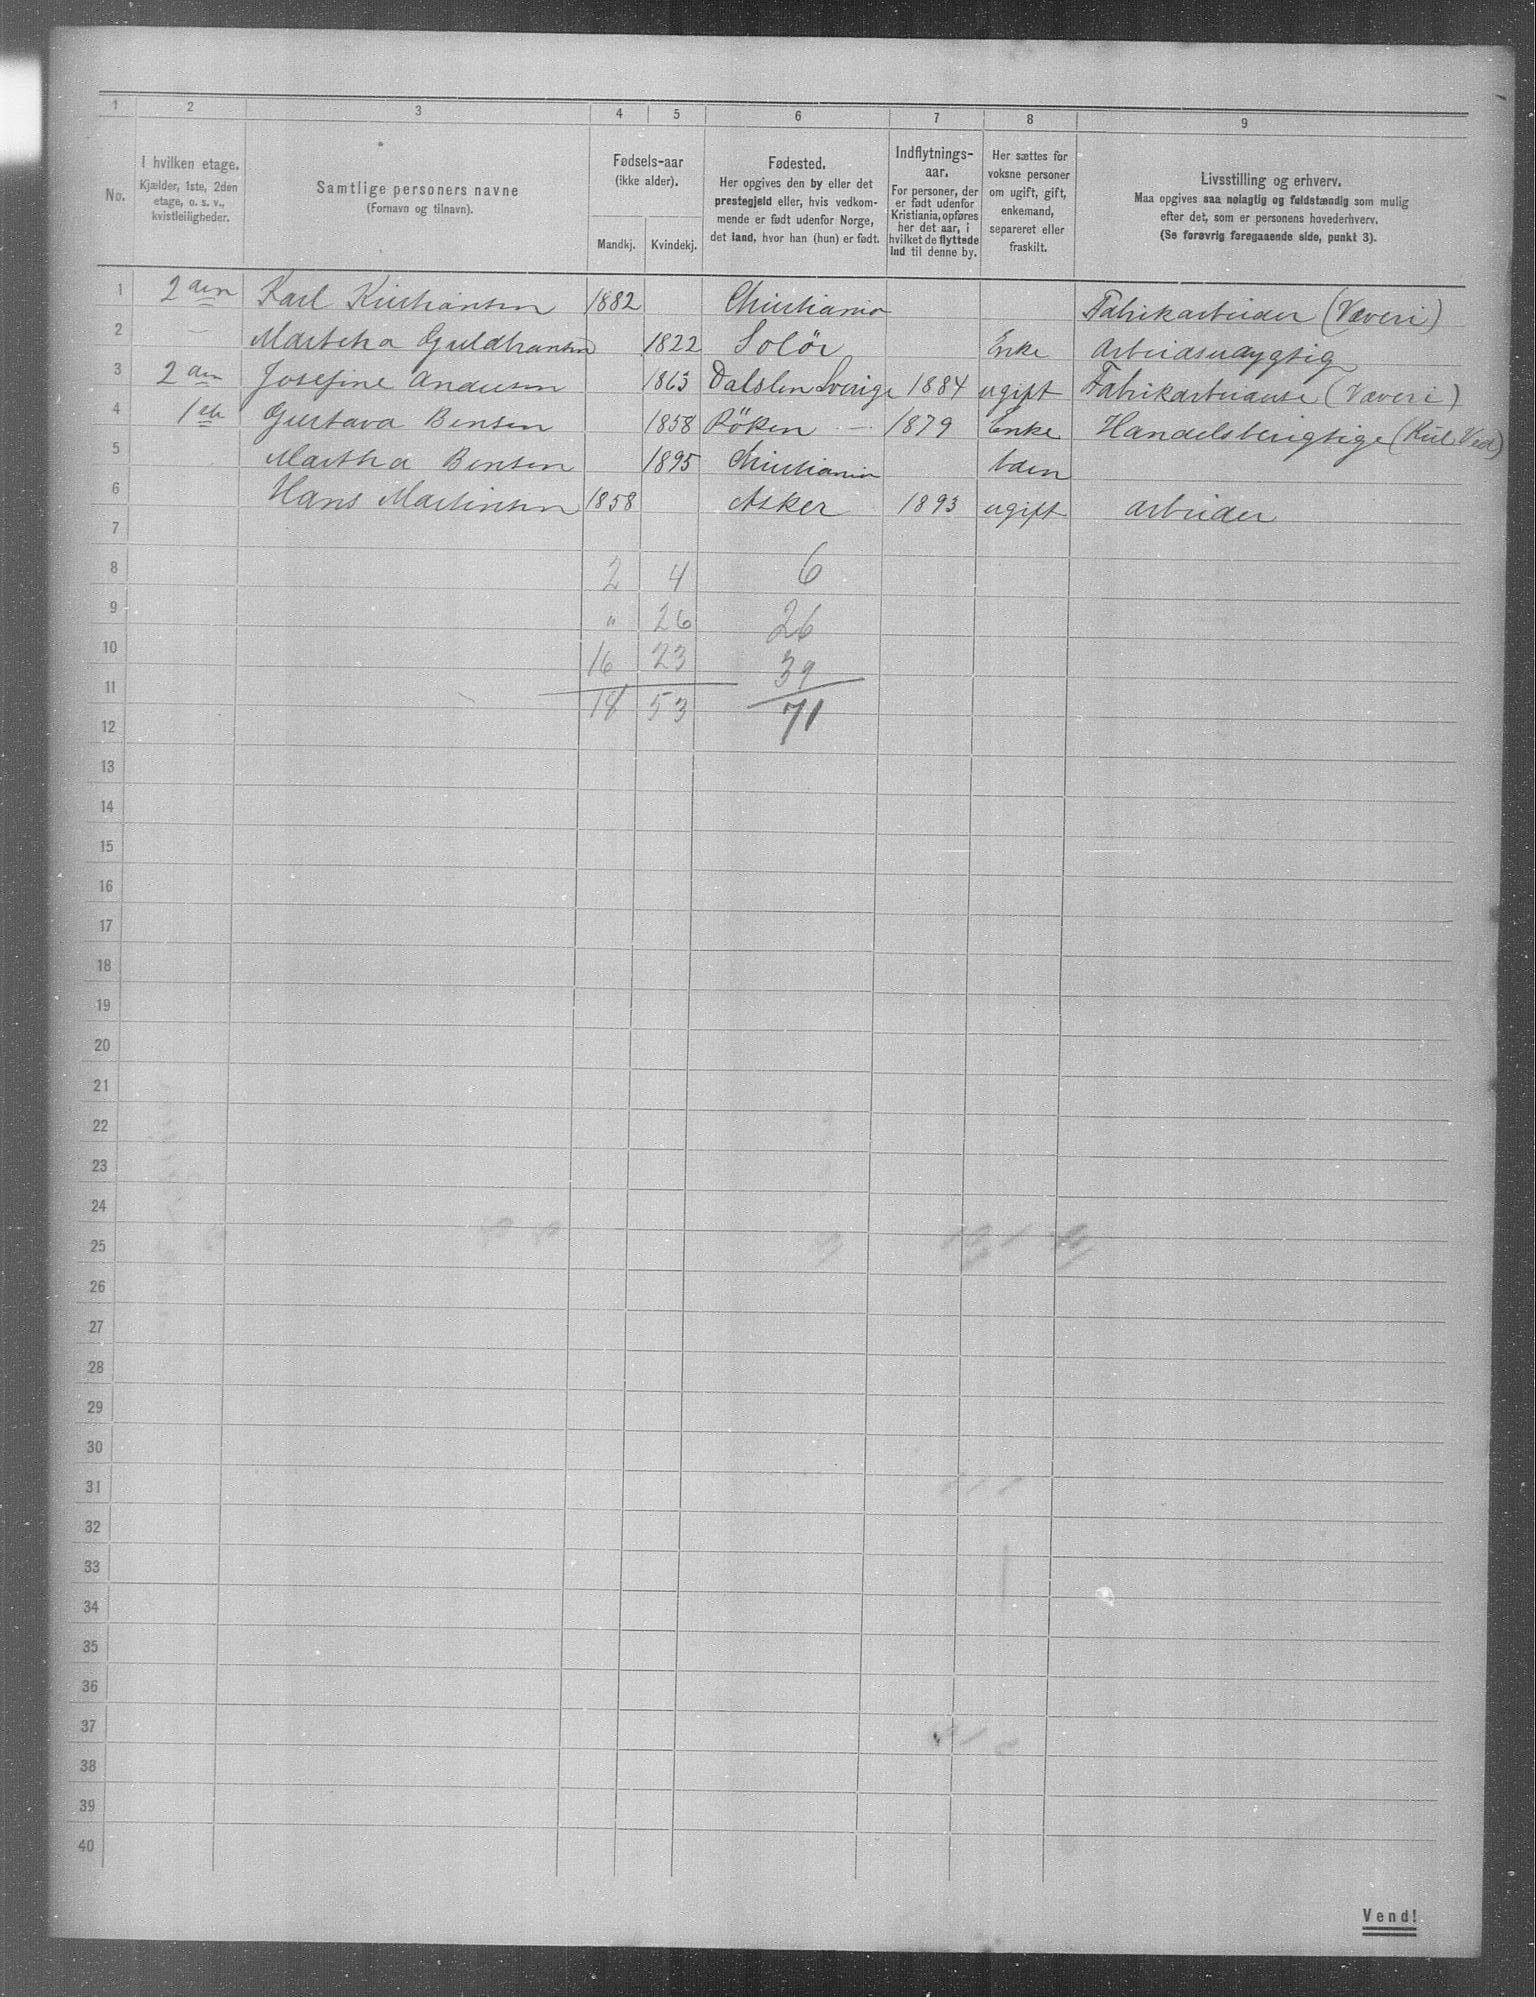 1 2 3 4 5 6 7 8 9
No.
I hvilken etage.
Kjælder, 1ste, 2den
etage, o. s. v.,
kvistleiligheder.
Samtlige personers navne
(Fornavn og tilnavn).
Fødsels-aar
(ikke alder).
Mandkj. Kvindekj.
Fødested.
Her opgives den by eller det
prestegjeld eller, hvis vedkom-
mende er født udenfor Norge,
det land, hvor han (hun) er født.
Indflytnings-
aar.
For personer, der
er født udenfor
Kristiania, opføres
her det aar, i
hvilket de flyttede
ind til denne by.
Her sættes for
voksne personer
om ugift, gift,
enkemand,
separeret eller
fraskilt.
Livsstilling og erhverv.
Maa opgives saa nøiagtig og fuldstændig som mulig
efter det, som er personens hovederhverv.
(Se forøvrig foregaaende side, punkt 3).
1 2den Karl Kristiansen 1882 Christiania Fabrikarbeider (Væveri)
2 — Martha Guldbransen 1822 Solör Enke Arbeidsudygtig
3 2den Josefine Andersen 1863 Dalslen Sverige 1884 ugift Fabrikarbeiderse (Væveri)
4 1ste Gustava Bensen 1858 Röken — 1879 Enke Handelsberigtige (Kul Ved)
5 Martha Bensen 1895 Christiania barn
6 Hans Martinsen 1858 Asker 1893 ugift arbeider
7
8 2 4 6
9 " 26 26
10 16 23 39
11 18 53 71
12
13
14
15
16
17
18
19
20
21
22
23
24
25
26
27
28
29
30
31
32
33
34
35
36
37
38
39
40
Vend!